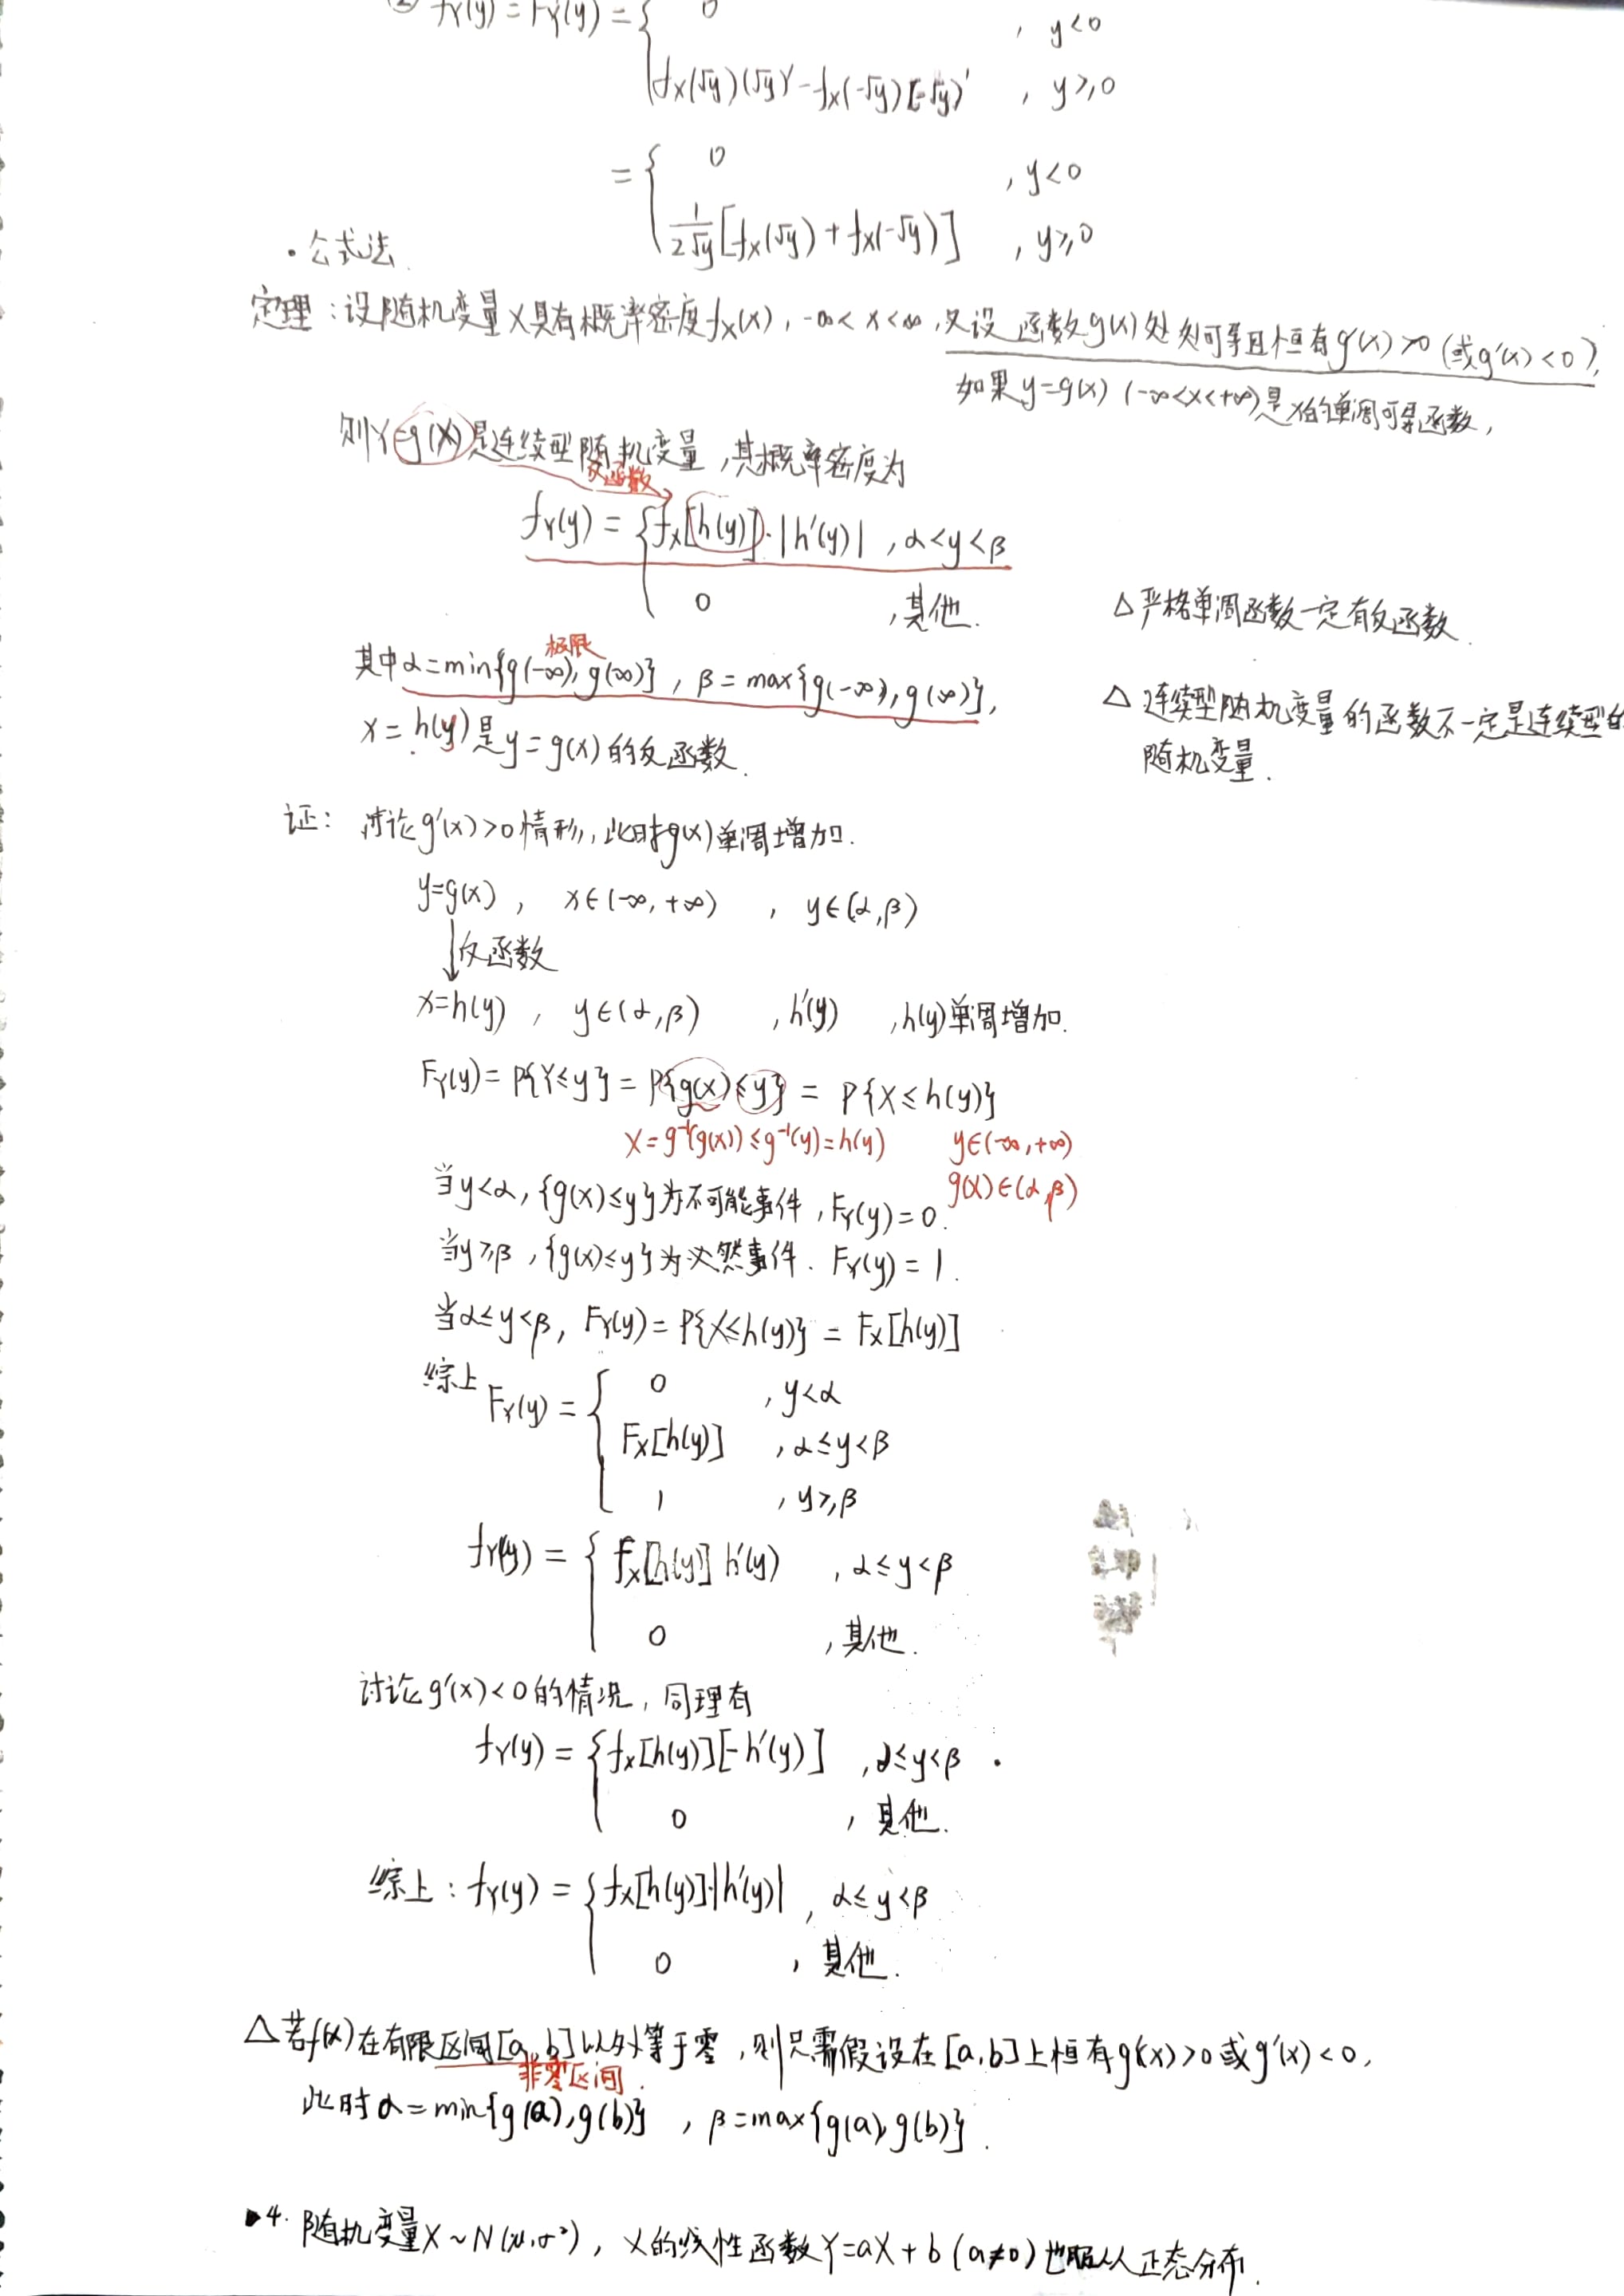 ② fY(y) = F'Y(y) = { 0 , y<0
fX(√y)(√y)' - fX(-√y)(-√y)' , y≥0
= { 0 , y<0
1/(2√y) [fX(√y) + fX(-√y)] , y≥0
· 公式法.
定理:设随机变量X具有概率密度fX(x), -∞<x<∞,又设函数g(x)处处可导且恒有g'(x)>0 (或g'(x)<0),
如果y=g(x) (-∞<x<+∞)是x的单调可导函数,
则Y=g(X)是连续型随机变量,其概率密度为
反函数
fY(y) = { fX[h(y)]·|h'(y)| , α<y<β
0 ,其他.
△ 严格单调函数一定有反函数.
极限
其中α=min{g(-∞), g(∞)}, β=max{g(-∞), g(∞)},
x=h(y)是y=g(x)的反函数.
△ 连续型随机变量的函数不一定是连续型的
随机变量.
证: 讨论g'(x)>0情形,此时g(x)单调增加.
y=g(x), x∈(-∞,+∞) , y∈(α,β)
↓反函数
x=h(y) , y∈(α,β) ,h'(y) ,h(y)单调增加.
FY(y)=P{Y≤y}=P{g(x)≤y} = P{X≤h(y)}
X=g⁻¹(g(x))≤g⁻¹(y)=h(y) y∈(-∞,+∞)
g(x)∈(α,β)
当y<α,{g(x)≤y}为不可能事件,FY(y)=0.
当y≥β,{g(x)≤y}为必然事件. FY(y)=1.
当α≤y<β, FY(y)=P{X≤h(y)} = FX[h(y)]
综上 FY(y) = { 0 , y<α
FX[h(y)] , α≤y<β
1 , y≥β
fY(y) = { fX[h(y)] h'(y) , α≤y<β
0 ,其他.
讨论g'(x)<0的情况,同理有
fY(y) = { fX[h(y)][-h'(y)] , α≤y<β .
0 , 其他.
综上: fY(y) = { fX[h(y)]·|h'(y)| , α≤y<β
0 , 其他.
△若f(x)在有限区间[a,b]以外等于零,则只需假设在[a,b]上恒有g'(x)>0或g'(x)<0,
非零区间.
此时α=min{g(a),g(b)} , β=max{g(a),g(b)}.
4. 随机变量X~N(μ,σ²), X的线性函数Y=aX+b (a≠0)也服从正态分布.